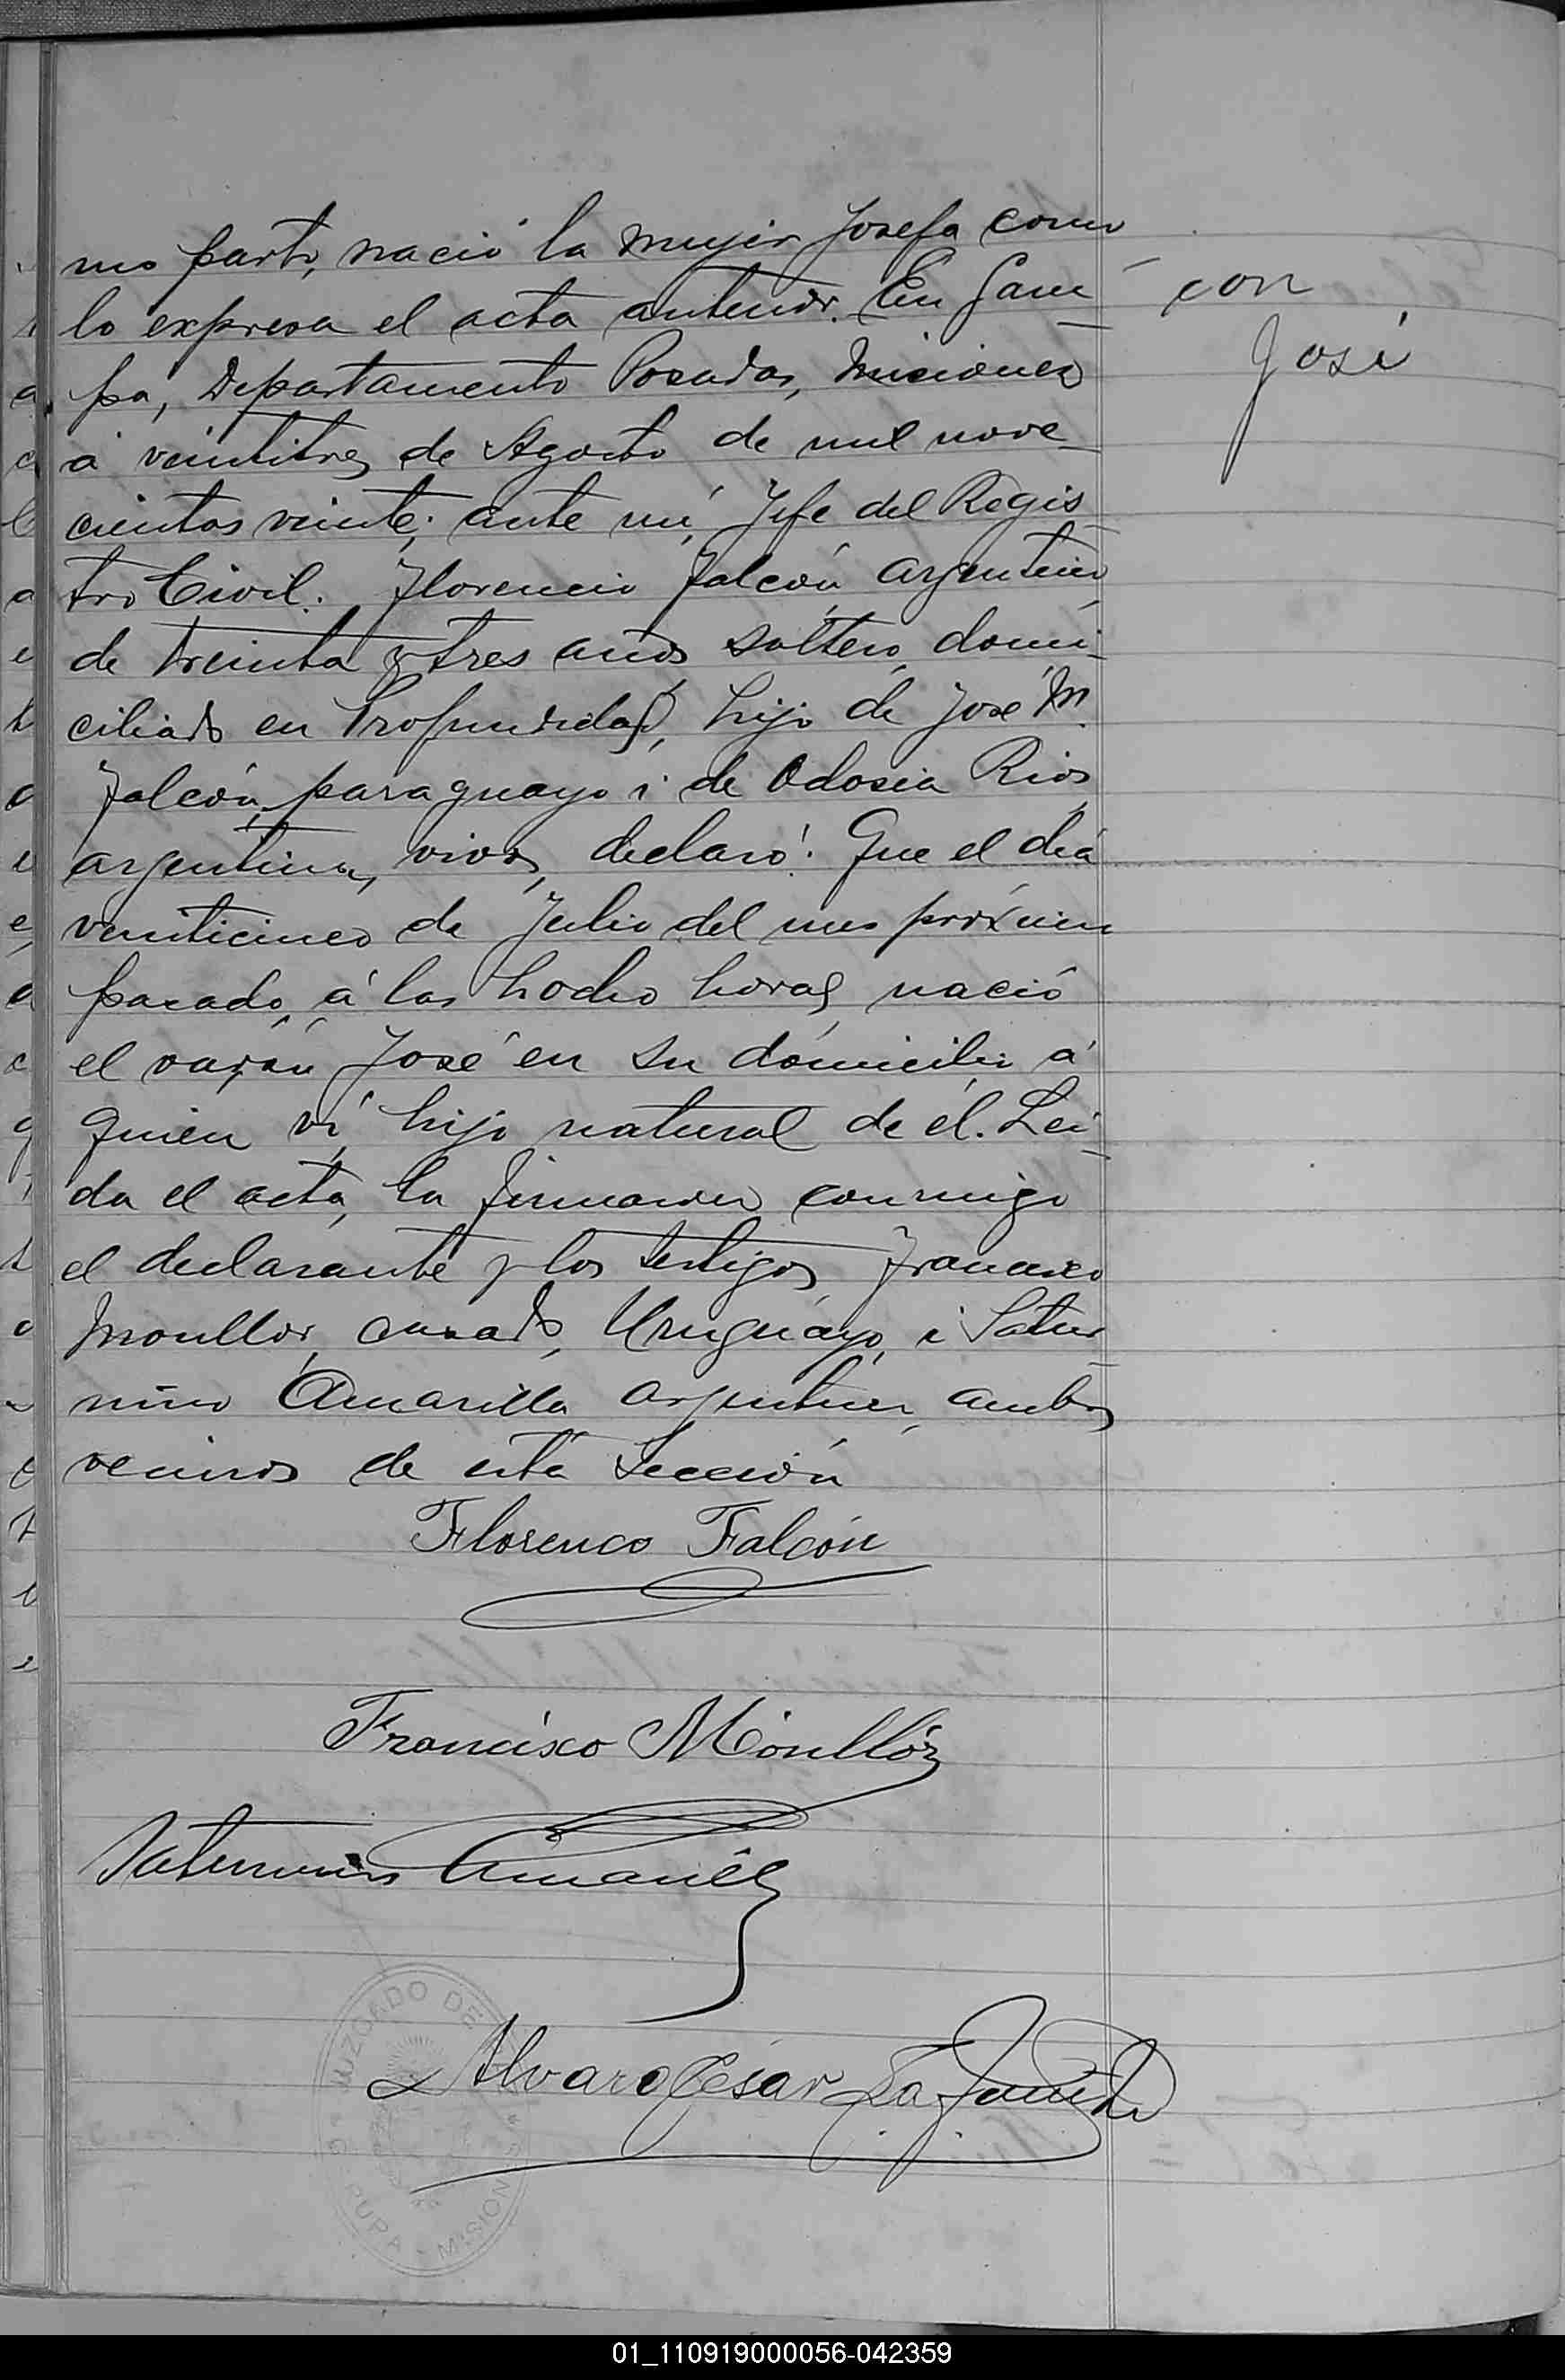 mo parto, nació la mujer Josefa como
lo expresa el acta anterior. En Garu
pa, Departamento Posadas, Misiones
á veintitres de Agosto de mil nove-
cientos veinte; ante mí, Jefe del Regis
tro Civil: Florencio Falcón, argentino,
de treinta y tres años, soltero, domi-
ciliado en Profundidad, hijo de José M.
Falcón, paraguayo i de Odosia Rios,
argentina, vivos, declaró: Que el día
veinticinco de Julio del mes próximo
pasado, á las hocho horas, nació
el varón José en su domicilio á
quien ví, hijo natural de él. Lei-
da el acta, la firmaron conmigo
el declarante y los testigos, Francisco
Moullor, casado, Uruguayo, i Satur
nino Amarilla argentino, ambos
vecinos de esta Sección
con
José
Florenco Falcón
Francisco Moullór
Saturnino Amarilla
Alvaro Cesar La
JUZGADO DE
RUPA - MISION
01_110919000056-042359